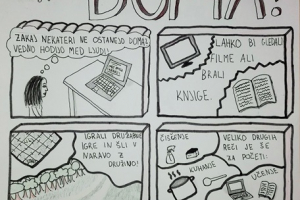 DOMA!
ZAKAJ NEKATERI NE OSTANEJO DOMA?
VEDNO HODIJO MED LJUDI.
LAHKO BI GLEDALI
FILME ALI
BRALI
KNJIGE.
IGRALI DRUŽABNE
IGRE IN ŠLI V
NARAVO Z
DRUŽINO!
ČIŠČENJE
KUHANJE
VELIKO DRUGIH
REČI JE ŠE
ZA POČETI:
UČENJE